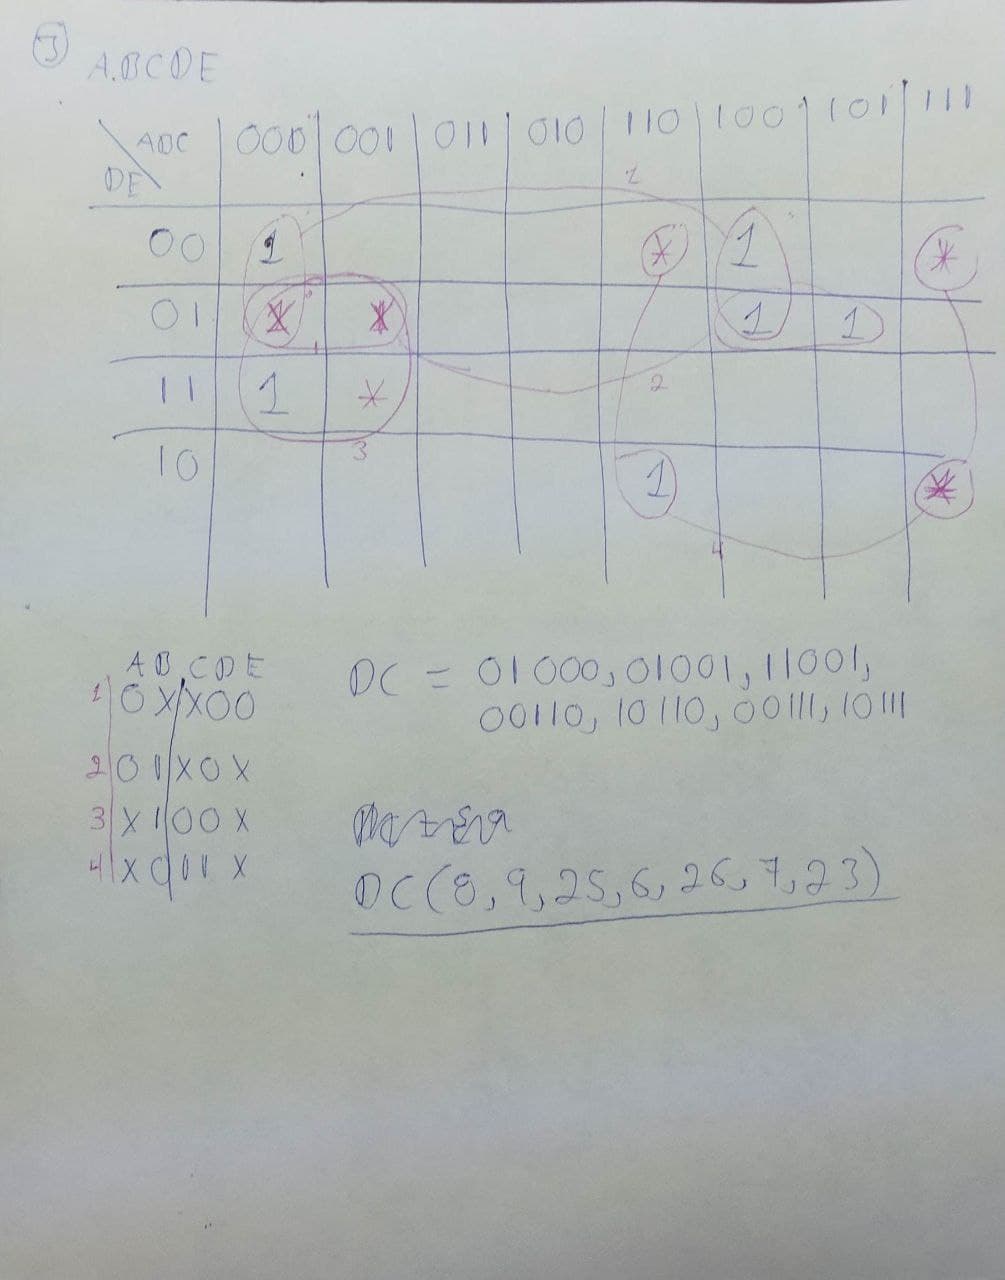 3
A.BCDE
ABC 000 001 011 010 110 100 101 111
DE
1
00 1 * 1 *
01 * * 1 1
2
11 1 *
3
10 1 *
4
A B C D E
1 0 X X 0 0
2 0 1 X 0 X
3 X 1 0 0 X
4 X 0 1 1 X
DC = 01000, 01001, 11001,
00110, 10110, 00111, 10111
DC(8, 9, 25, 6, 26, 7, 23)